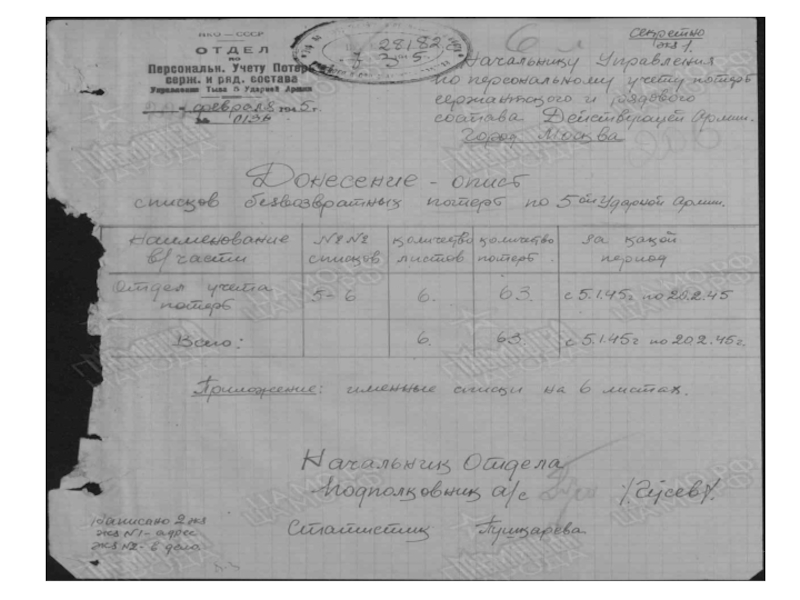 НКО – СССР
ОТДЕЛ
по
Персональн. Учету Потерь
серж. и ряд. состава
Управление Тыла 5 Ударной Армии
февраля 1945 г.
№ 0136
28182
Секретно
экз 1.
Начальнику Управления
по персональному учету потерь
сержантского и рядового
состава Действующей Армии.
город Москва
Донесение - опись
списков безвозвратных потерь по 5ой Ударной Армии.
Наименование в/части
№№ списков
количество листов
количество потерь.
за какой период
Отдел учета потерь
5-6
6.
63.
с 5.1.45г по 20.2.45
Всего:
6.
63.
с 5.1.45г по 20.2.45г.
Приложение: именные списки на 6 листах.
Начальник Отдела
Подполковник а/с /Гусев/.
Статистик Пушкарева.
Написано 2 экз
экз №1 - адрес
экз №2 - в дело.